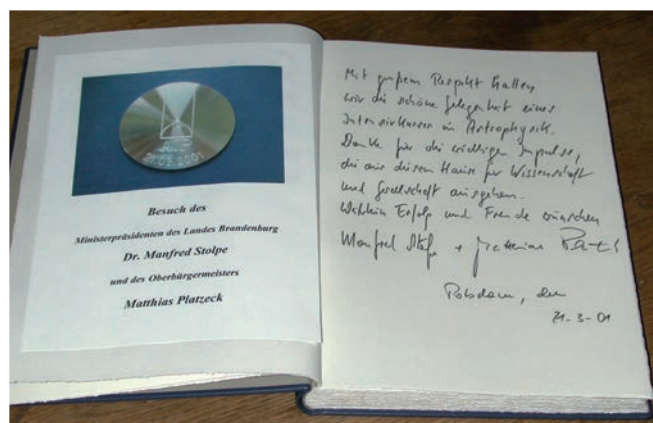 21.03.2001
Besuch des
Ministerpräsidenten des Landes Brandenburg
Dr. Manfred Stolpe
und des Oberbürgermeisters
Matthias Platzeck
Mit großem Respekt hatten
wir die schöne Gelegenheit eines
Intensivkurses in Astrophysik.
Danke für die wichtigen Impulse,
die aus diesem Hause für Wissenschaft
und Gesellschaft ausgehen.
Erfolg und Freude wünschen
Manfred Stolpe + Matthias Platzeck
Potsdam, den
21-3-01